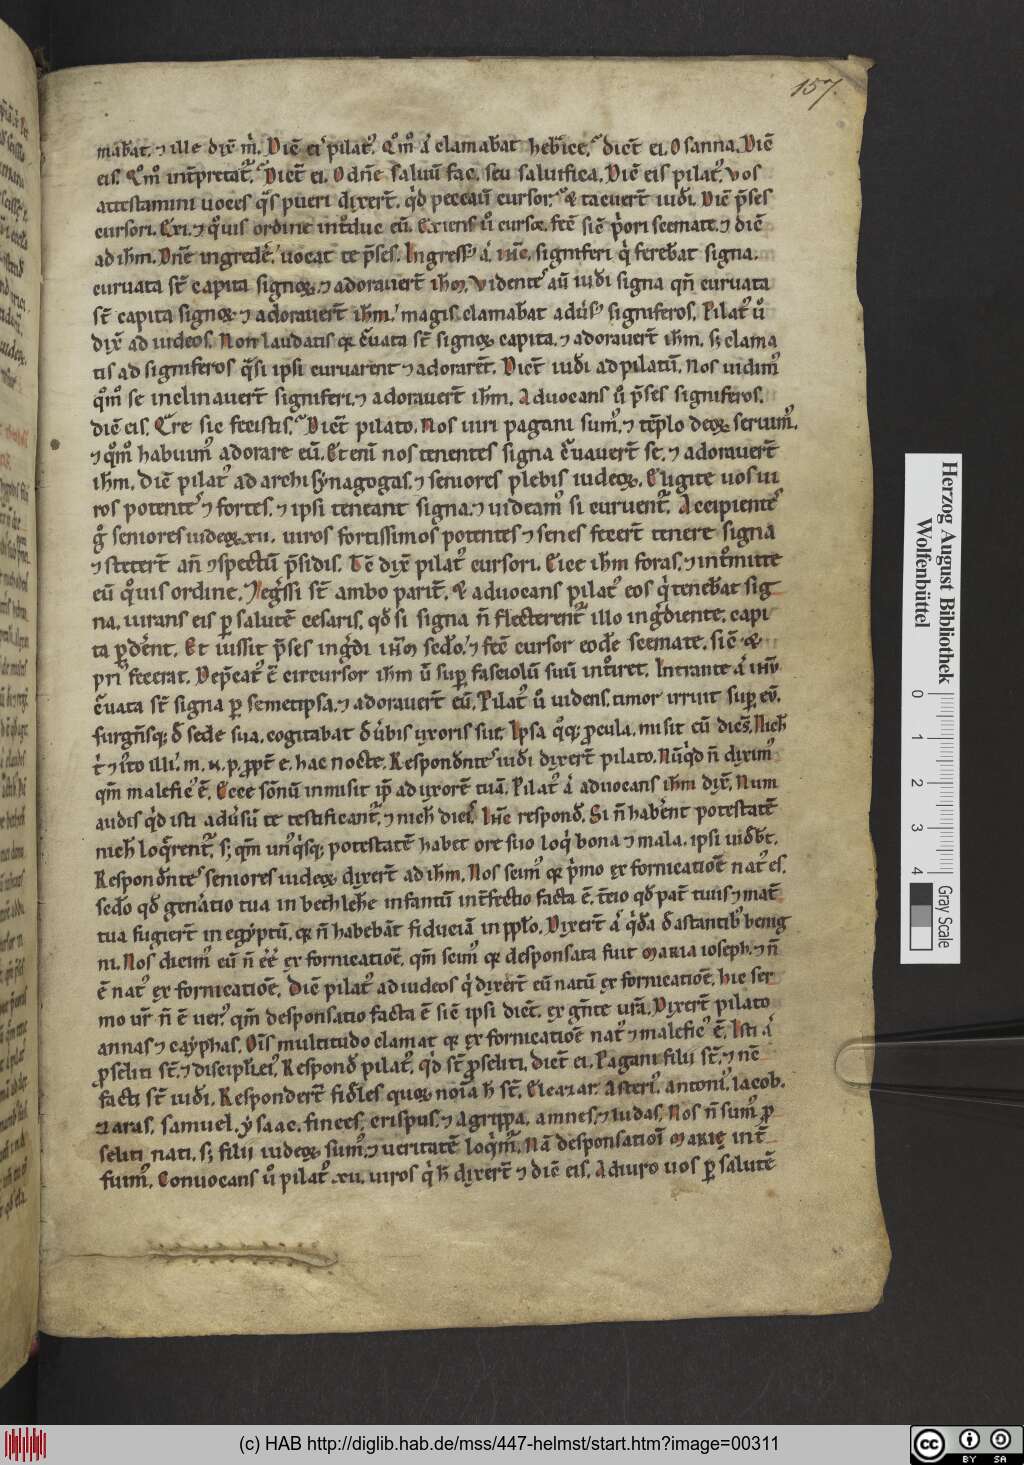 157.
mabãt. ⁊ ille dix̃ m̃. Diẽ ei pilat⁹. Qͦmͦ aͥ clamabãt hebͥice. dicẽt ei. Osanna. Diẽ
eis. Qͦmͦ int̃pretat̃. Dicẽt ei. O dñe saluũ fac. seu saluifica. Diẽ eis pilat⁹. vos
attestamini uoces qͥs pueri dixer̃t. qͥd peccauͥ cursor. & tacuer̃t iudͥi. Diẽ p̃ses
cursori. Exi. ⁊ qͦuis ordine int̃duc eũ. Exiens uͦ cursor. fec̃ sic̃ pͥori scemate. ⁊ diẽ
ad ih̃m. Dñe ingredẽ. uocat te p̃ses. Ingress⁹ aͥ ih̃c. signiferi qͥ ferebãt signa.
curuata st̃ capita signoꝝ. ⁊ adorauer̃t ih̃m. Vident⁹ aũ iudͥi signa qñ curuata
st̃ capita signoꝝ ⁊ adorauer̃t ih̃m. magis clamabãt adu̾s⁹ signiferos. Pilat⁹ uͦ
dix̃ ad iudeos. Non laudatis qꝛ c̃uata st̃ signoꝝ capita. ⁊ adorauer̃t ih̃m. sꝫ clama
tis ad signiferos qͣsi ipsi curuarent ⁊ adorarẽt. Dicẽt iudͥi ad pilatũ. Nos uidim⁹
qͦmͦ se inclinauer̃t signiferi. ⁊ adorauer̃t ih̃m. Aduocans uͦ p̃ses signiferos.
diẽ eis. Cͬe sic fecistis. Dicẽt pilato. Nos uiri pagani sum⁹. ⁊ tẽplo deoꝝ seruim⁹.
⁊ qͦmͦ habuim⁹ adorare eũ. Et enĩ nos tenentes signa c̃uauer̃t se. ⁊ adorauer̃t
ih̃m. Diẽ pilat⁹ ad archisynagogas. ⁊ seniores plebis iudeoꝝ. Eligite uos ui
ros potent⁹ ⁊ fortes. ⁊ ipsi teneant signa. ⁊ uideam⁹ si curuent̃. Accipient⁹
gͦ seniores iudeoꝝ .xii. uiros fortissimos potentes ⁊ senes fecer̃t tener̃ signa
⁊ steter̃t añ ⁊spectũ p̃sidis. Tc̃ dix̃ pilat⁹ cursori. Eice ih̃m foras. ⁊ intͦmitte
eũ qͦuis ordine. ⁊egͥssi st̃ ambo parit̃. & aduocans pilat⁹ eos qͥ tenebãt sig
na. iurans eis ꝑ salutẽ cesaris. qd̃ si signa ñ flecterent̃ illo ingͥdiente. capi
ta p̃dẽnt. Et iussit p̃ses ingͥdi ih̃m sedͦo. ⁊ fec̃ cursor eodẽ scemate. sic̃ &
pri⁹ fecerat. Dep̃cat⁹ ẽ circursor ih̃m ũ suꝑ fasciolũ suũ int̃iret. Intrante aͥ ih̃u
c̃uata st̃ signa ꝑ semetipsa. ⁊ adorauer̃t eũ. Pilat⁹ uͦ uidens. timor irruit suꝑ eũ.
surgñsqꝫ d̃ sede sua. cogitabat d̃ ũbis uxoris sue. Ipsa qͦqꝫ procula. misit eũ dicẽs. Nich̃
t̾ ⁊ iͥto illi. m. x. p. ꝓpt̃ e. hac nocte. Respondnt⁹ iudͥi dixer̃t pilato. Nũqͥd ñ dixim⁹
qm̃ malefic⁹ ẽ. Ecce sõnũ inmisit ip̃ ad uxorẽ tuã. Pilat⁹ aͥ aduocans ih̃m dix̃. Num
audis qͥd isti adu̾sũ te testificant̃. ⁊ nich̃ dicis. Ih̃c respond̃. Si ñ habẽnt potestatẽ
nich̃ loqͤrent̃. sꝫ qm̃ un⁹qͥsqꝫ potestatẽ habet ore suo loqͥ bona ⁊ mala. ipsi uidb̃t.
Respondñt⁹ seniores iudeoꝝ dixer̃t ad ih̃m. Nos scim⁹ qꝛ pͥmo ex fornicatiõe nat⁹ es.
secdͦo qd̃ genãtio tua in bethleh̃e infantũ int̃fectio facta ẽ. t̃cio qd̃ pat̃ tuus ⁊ mat̃
tua fugier̃t in egyptũ. qꝛ ñ habebãt fiduciã in pp̃lo. Dixer̃t aͥ qͥda d̃ astantib⁹ benig
ni. Nos dicim⁹ eũ ñ eẽ ex fornicatiõe. qm̃ scim⁹ qꝛ desponsata fuit maria ioseph. ⁊ ñ
ẽ nat⁹ ex fornicatiõe. Diẽ pilat⁹ ad iudeos qͥ dixer̃t eũ natũ ex fornicatiõe. hic ser
mo ur̃ ñ ẽ uer⁹. qm̃ desponsatio facta ẽ sic̃ ipsi dicẽt. ex gñte ur̃a. Dixer̃t pilato
annas ⁊ cayphas. Oĩs multitudo clamat qꝛ ex fornicatiõe nat⁹ ⁊ malefic⁹ ẽ. Isti aͥ
ꝓseliti st̃. ⁊ discipli ei⁹. Respond̃ pilat⁹. qͥd st̃ ꝓseliti. dicẽt ei. Pagani filii st̃. ⁊ nẽ
facti st̃ iudͥi. Responder̃t fid̃les quoꝝ noĩa h̃ st̃. Eleazar. Asteri⁹. antoni⁹. Iacob.
zaras. samuel. ysaac. finees. crispus. ⁊ agrippa. amnes. ⁊ Iudas. Nos ñ sum⁹ ꝓ
seliti nati. sꝫ filii iudeoꝝ sum⁹. ⁊ ueritatẽ loqͥm̃. Nã desponsatiõi Marie int̃
fuim⁹. Conuocans uͦ pilat⁹ .xii. uiros qͥ h̃ dixer̃t ⁊ diẽ eis. Adiuro uos ꝑ salutẽ
Herzog August Bibliothek
Wolfenbüttel
0 1 2 3 4
Gray Scale
(c) HAB http://diglib.hab.de/mss/447-helmst/start.htm?image=00311
cc BY SA